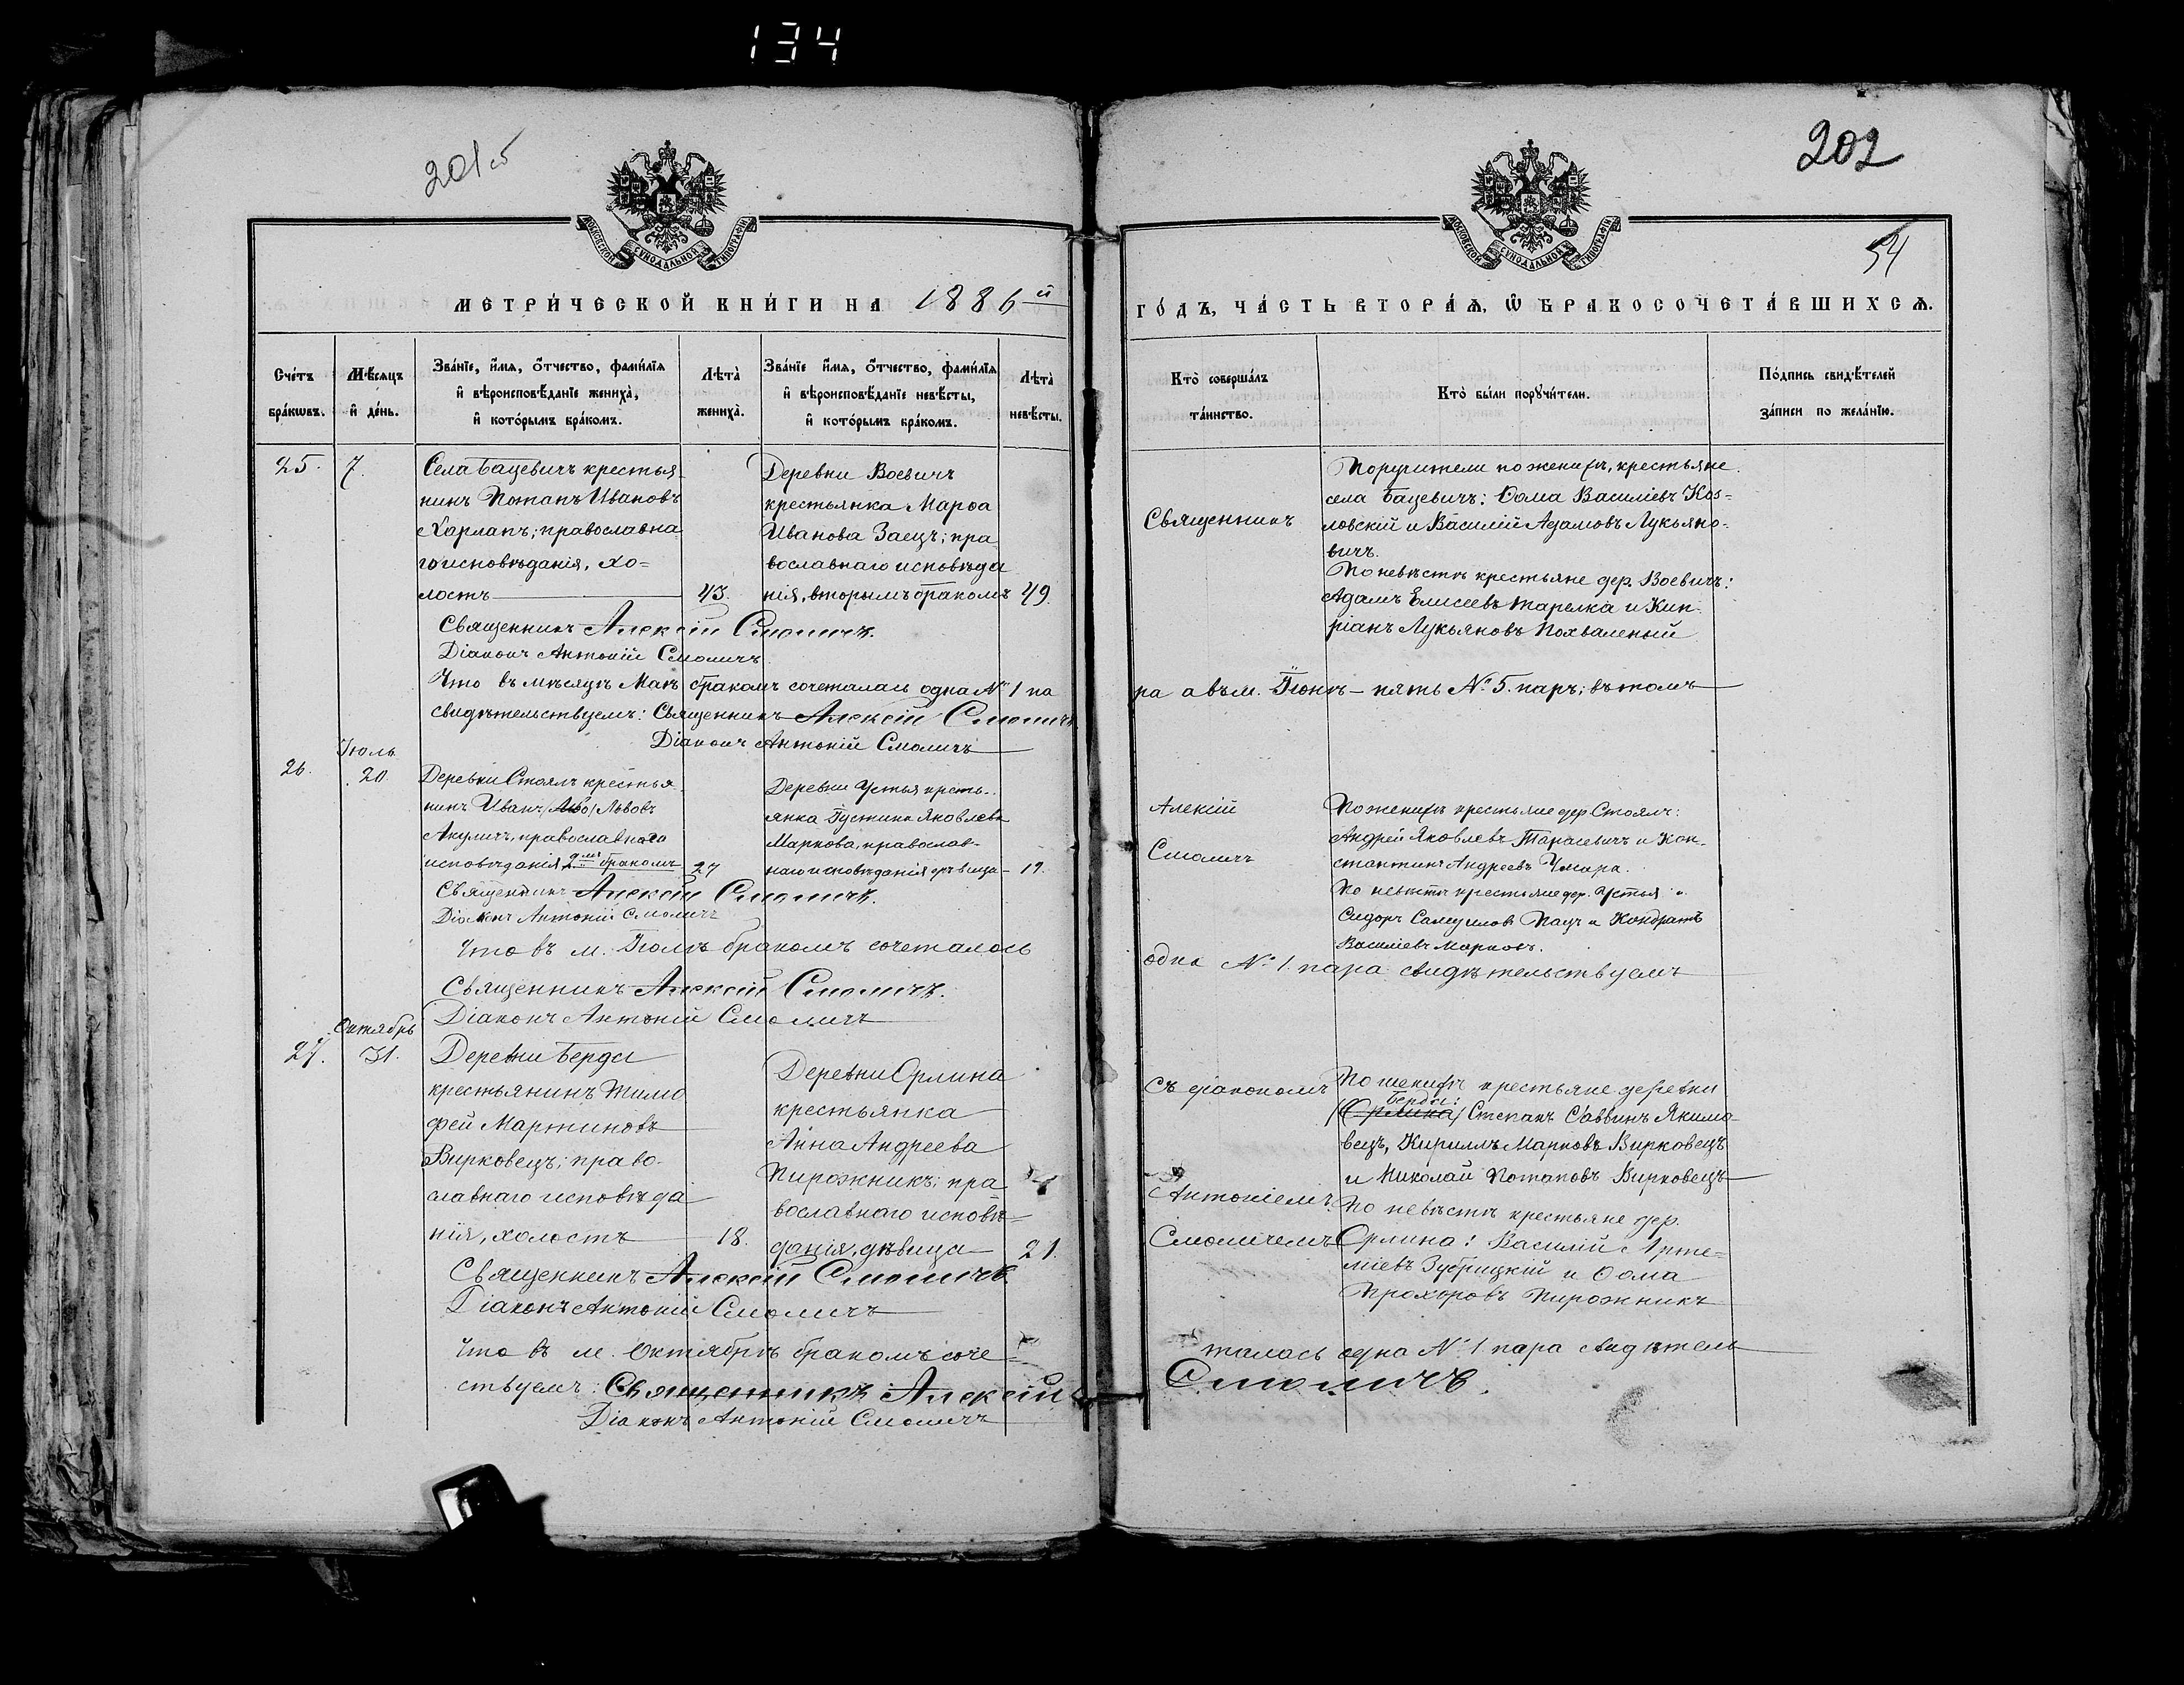 134
201 об
202
54
МОСКОВСКОЙ СѴНОДАЛЬНОЙ ТИПОГРАФІИ
МОСКОВСКОЙ СѴНОДАЛЬНОЙ ТИПОГРАФІИ
МЕТРИ́ЧЕСКОЙ КНИ́ГИ НА 1886й
ГО́ДЪ, ЧА́СТЬ ВТОРА́Ѧ, Ѡ҆ БРАКОСОЧЕТА́ВШИХСѦ.
Сче́тъ бра́кѡвъ.
Мѣ́сяцъ и҆ де́нь.
Зва́нїе, и҆́мя, ѻ҆́тчество, фами́лїя
и҆ вѣроисповѣ́данїе жениха̀,
и҆ кото́рымъ бра́комъ.
Лѣта̀ жениха̀.
Зва́нїе и҆́мя, ѻ҆́тчество, фами́лїя
и҆ вѣроисповѣ́данїе невѣ́сты,
и҆ кото́рымъ бра́комъ.
Лѣта̀ невѣ́сты.
Кто̀ соверша́лъ
та́инство.
Кто̀ бы́ли порꙋчи́тели.
По́дпись свидѣ́телей
за́писи по жела́нїю.
25. 7.
Села Бацевичъ крестья
нинъ Потапъ Ивановъ
Харлапъ; православна
го исповѣданія, хо=
лостъ 43.
Деревни Воевичъ
крестьянка Марѳа
Иванова Заецъ; пра
вославнаго исповѣда
нія, вторымъ бракомъ 49.
Священникъ
Поручители по женихѣ, крестьяне
села Бацевичъ: Ѳома Василіевъ Коз=
ловскій и Василій Адамовъ Лукьяно-
вичъ.
По невѣстѣ крестьяне дер. Воевичъ:
Адамъ Елисеевъ Тарелка и Кип
ріанъ Лукьяновъ Похваленый
Священникъ Алексій Смоличъ.
Діаконъ Антоній Смоличъ.
Что въ мѣсяцѣ Маѣ бракомъ сочеталась одна № 1 па
ра а въ м. Іюнѣ – пять № 5. паръ; въ томъ
свидѣтельствуемъ: Священникъ Алексій Смоличъ
Діаконъ Антоній Смоличъ
Іюль
26. 20.
Деревни Стоялъ крестья
нинъ Иванъ Львовъ
Акуличъ, православнаго
исповѣданія 2мъ бракомъ 27
Деревни Устья кресть-
янка Іустина Яковлева
Маркова, православ-
наго исповѣданія дѣвица – 19.
Алексій
Смоличъ
По женихѣ крестьяне дер. Стоялъ:
Андрей Яковлевъ Тарасевичъ и Кон-
стантинъ Андреевъ
По невѣстѣ крестьяне дер. Устья:
Сидоръ Самуиловъ Пацъ и Кондратъ
Василіевъ Марковъ.
Священникъ Алексій Смоличъ.
Діаконъ Антоній Смоличъ
Что въ м. Іюлѣ бракомъ сочеталось
одна № 1. пара свидѣтельствуемъ
Священникъ Алексій Смоличъ.
Діаконъ Антоній Смоличъ
Октябрь
27. 31.
Деревни Берда
крестьянинъ Тимо
фей Мартиновъ
Вирковецъ; право-
славнаго исповѣда
нія, холостъ 18.
Деревни Орлина
крестьянка
Анна Андреева
Пирожникъ; пра
вославнаго исповѣ=
данія, дѣвица 21.
Съ діакономъ
Антоніемъ
Смоличемъ
По женихѣ крестьяне деревни
Берда:
(Орлина) Степанъ Саввинъ Якимо-
вецъ, Кириллъ Марковъ Вирковецъ
и Николай Потаповъ Вирковецъ
По невѣстѣ крестьяне дер.
Орлина: Василій Арте=
міевъ Зубрицкій и Ѳома
Прохоровъ Пирожникъ
Священникъ Алексій Смоличъ
Діаконъ Антоній Смоличъ
Что въ м. Октябрѣ бракомъ соче=
талась одна № 1 пара свидѣтель
ствуемъ: Священникъ Алексій Смоличъ.
Діаконъ Антоній Смоличъ